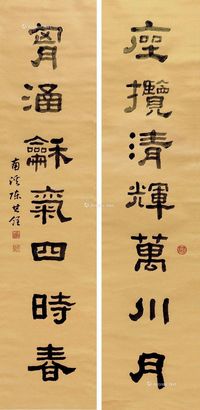 座攬清輝萬川月
胷涵龢氣四時春
南溪陈世镗